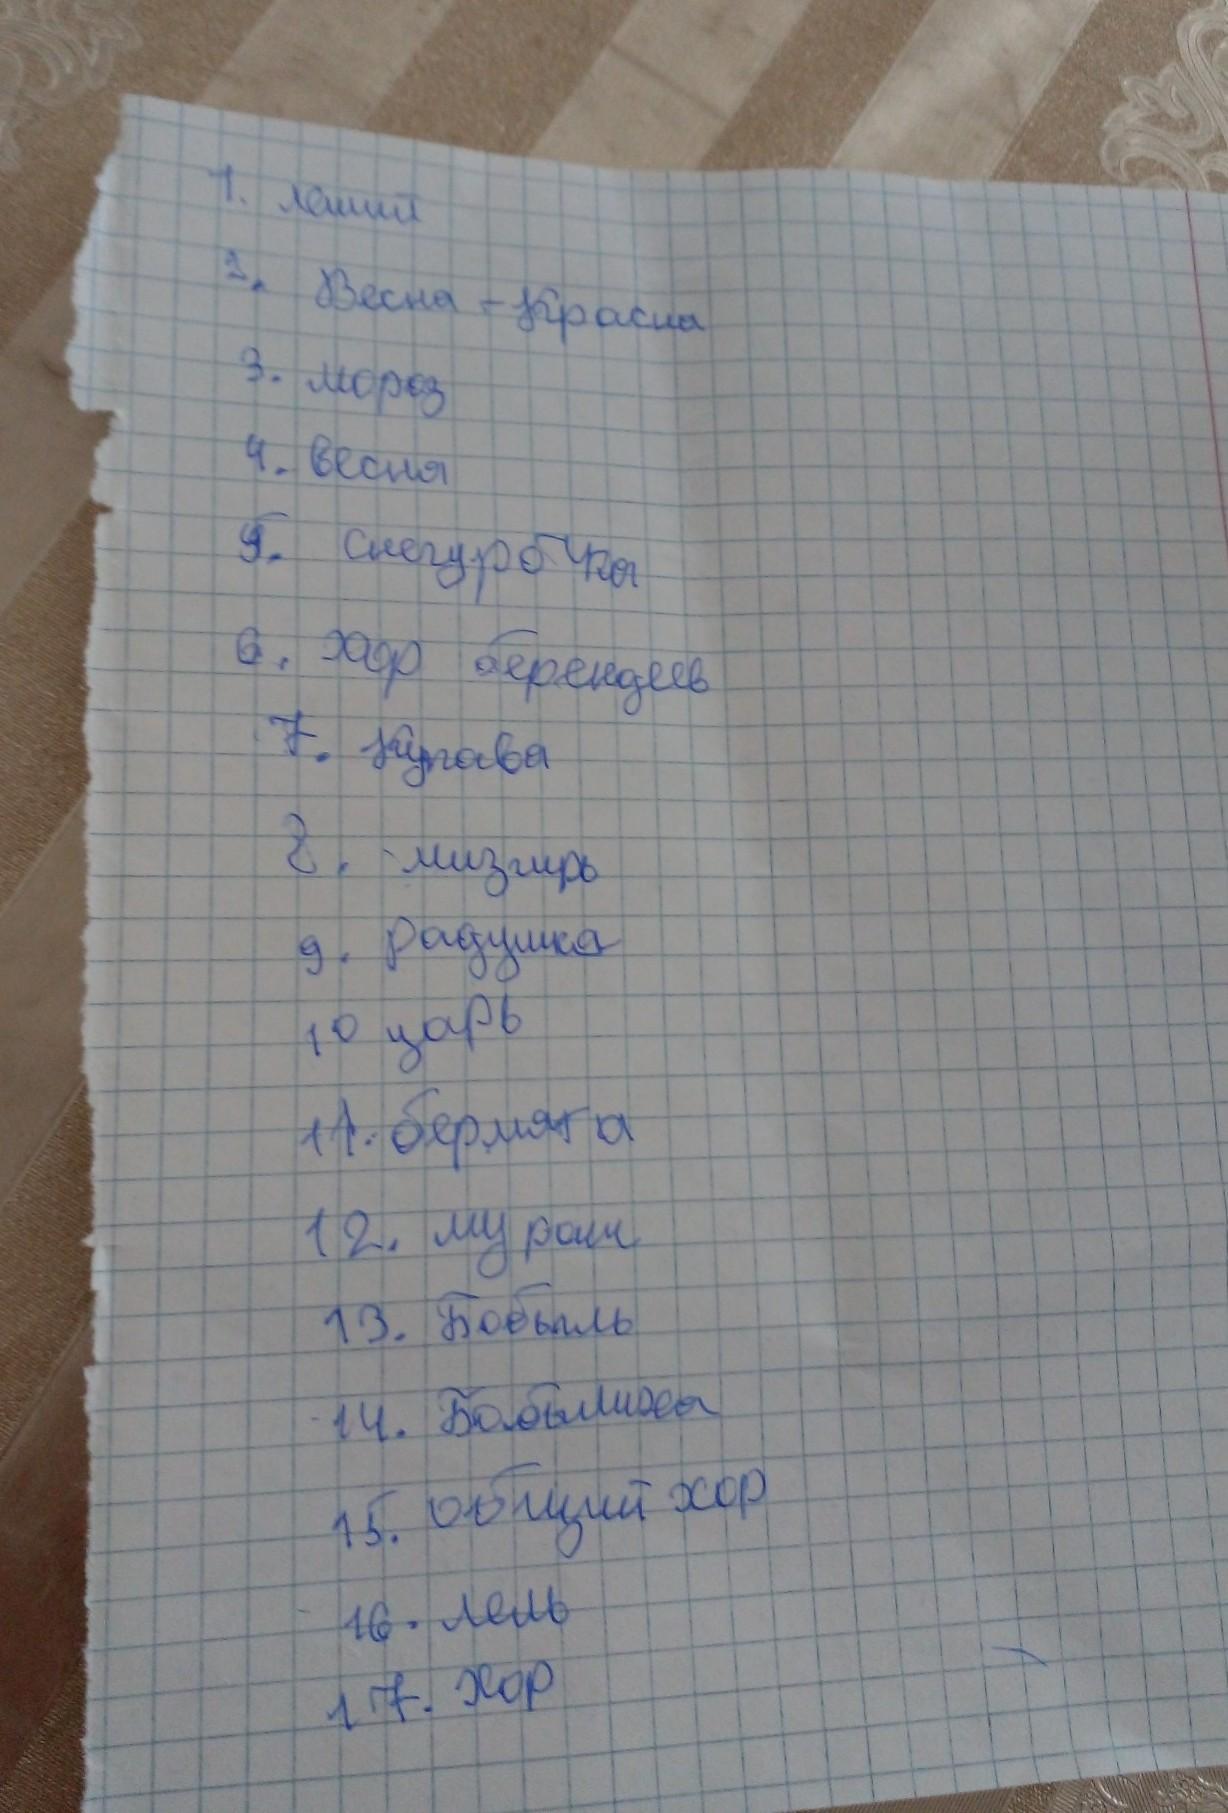 1. леший
2. Весна - Красна
3. мороз
4. весна
5. Снегурочка
6. хор берендеев
7. Купава
8. мизгирь
9. Радушка
10 царь
11. бермята
12. мураш
13. Бобыль
14. Бобылиха
15. общий хор
16. лель
17. хор